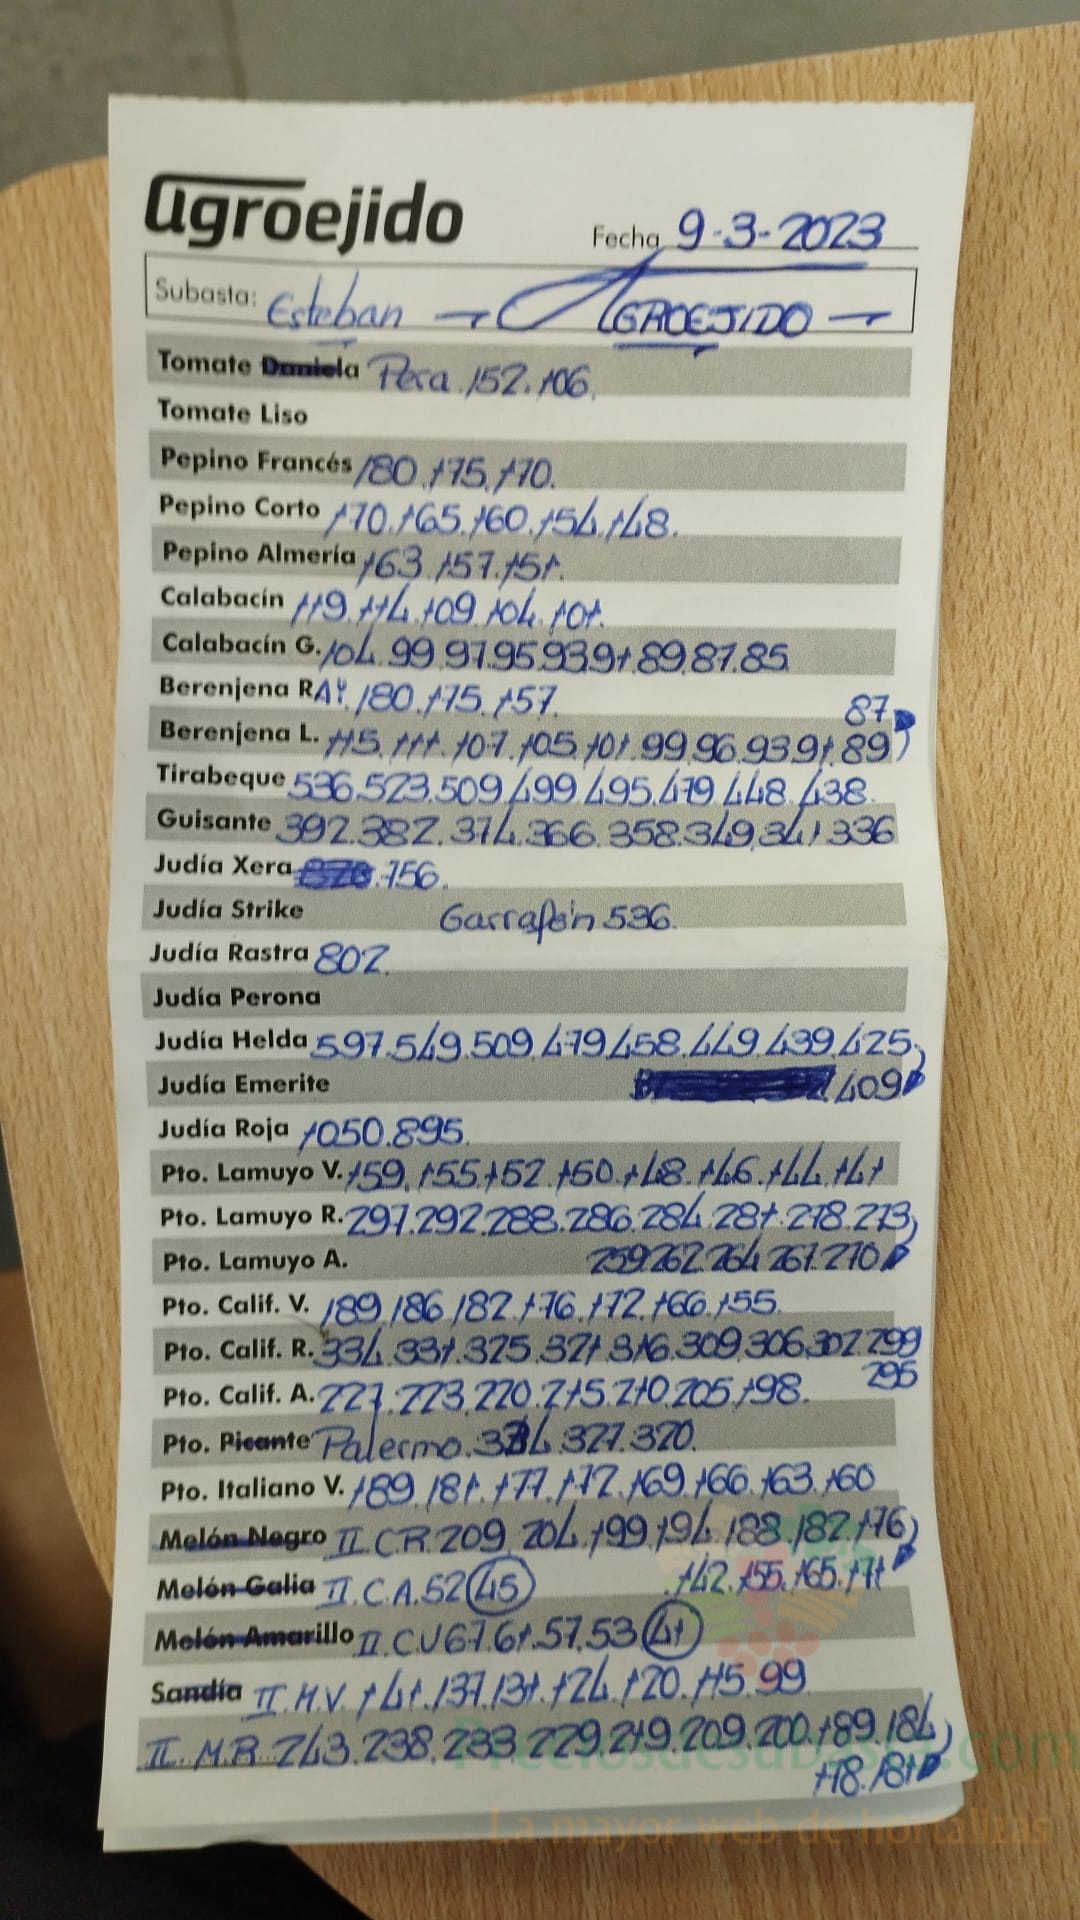 agroejido
Fecha 9-3-2023
Subasta: Esteban → AGROEJIDO →
Tomate Daniela Pera. 152. 106.
Tomate Liso
Pepino Francés 180. 175. 170.
Pepino Corto 170. 165. 160. 154. 148.
Pepino Almería 163. 157. 151.
Calabacín 119. 114. 109. 104. 101.
Calabacín G. 104. 99. 97. 95. 93. 91. 89. 87. 85
Berenjena RAY. 180. 175. 157. 87
Berenjena L. 115. 111. 107. 105. 101. 99. 96. 93. 91. 89
Tirabeque 536. 523. 509. 499. 495. 479. 448. 438.
Guisante 392. 382. 374. 366. 358. 349. 341 336
Judía Xera 756.
Judía Strike Garrafón 536.
Judía Rastra 802.
Judía Perona
Judía Helda 597. 549. 509. 479. 458. 449. 439. 425
Judía Emerite 409
Judía Roja 1050. 895.
Pto. Lamuyo V. 159. 155. 152. 150. 148. 146. 144. 141
Pto. Lamuyo R. 297. 292. 288. 286. 284. 281. 278. 273
Pto. Lamuyo A. 259. 262. 264. 267. 270
Pto. Calif. V. 189. 186. 182. 176. 172. 166. 155.
Pto. Calif. R. 334. 331. 325. 321. 316. 309. 306. 302 299
295
Pto. Calif. A. 227. 223. 220. 215. 210. 205. 198.
Pto. Picante Palermo. 334. 327. 320.
Pto. Italiano V. 189. 181. 177. 172. 169. 166. 163. 160
Melón Negro II. C.R. 209. 204. 199. 194. 188. 182. 176
142. 155. 165. 171
Melón Galia II. C.A. 52 45
Melón Amarillo II. C.V 67. 61. 57. 53 41
Sandía II. H.V. 141. 137. 131. 124. 120. 115. 99
II. M.R. 243. 238. 233. 229. 219. 209. 200. 189. 184
181
Preciosdesubasta.com
La mayor web de hortalizas